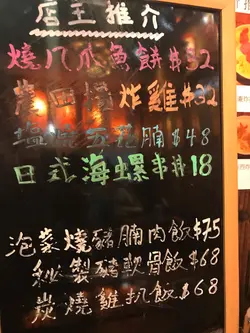 店主推介
燒八爪魚餅$32
炸雞$32
鹽燒五花腩$48
日式海螺串燒18
泡菜燒豬腩肉飯$75
秘製豬軟骨飯$68
炭燒雞扒飯$68